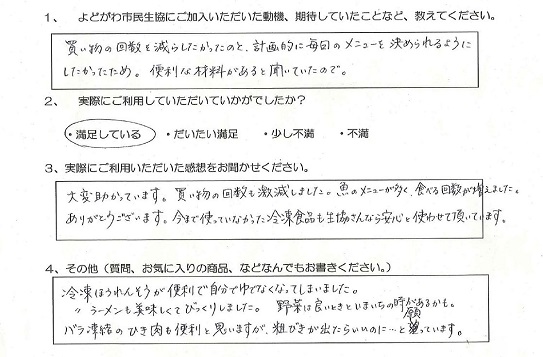 1、 よどがわ市民生協にご加入いただいた動機、期待していたことなど、教えてください。
買い物の回数を減らしたかったのと、計画的に毎日のメニューを決められるように
したかったため。便利な材料があると聞いていたので。
2、 実際にご利用していただいていかがでしたか?
・満足している ・だいたい満足 ・少し不満 ・不満
3、実際にご利用いただいた感想をお聞かせください。
大変助かっています。買い物の回数も激減しました。魚のメニューが多く、食べる回数が増えました。
ありがとうございます。今まで使っていなかった冷凍食品も生協さんなら安心と使わせて頂いています。
4、その他(質問、お気に入りの商品、などなんでもお書きください。)
冷凍ほうれんそうが便利で自分でゆでなくなってしまいました。
〃 ラーメンも美味しくてびっくりしました。 野菜は良いときといまいちの時があるかも。
バラ凍結のひき肉も便利と思いますが、粗びきが出たらいいのに…と願っています。